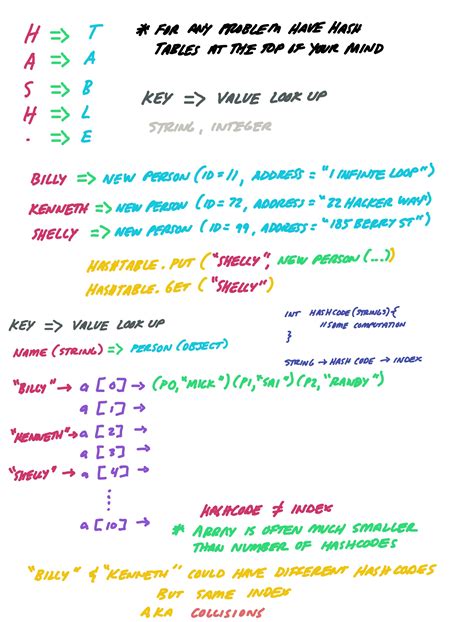 H => T
A => A
S => B
H => L
. => E
* FOR ANY PROBLEM HAVE HASH
TABLES AT THE TOP IF YOUR MIND
KEY => VALUE LOOK UP
STRING, INTEGER
BILLY => NEW PERSON (ID=11, ADDRESS="1 INFINTE LOOP")
KENNETH => NEW PERSON (ID=72, ADDRESS="22 HACKER WAY)
SHELLY => NEW PERSON (ID=99, ADDRESS="185 BERRY ST")
HASHTABLE.PUT ("SHELLY", NEW PERSON (...))
HASHTABLE.GET ("SHELLY")
KEY => VALUE LOOK UP
NAME (STRING) => PERSON (OBJECT)
INT HASHCODE(STRING S){
//SOME COMPUTATION
}
STRING → HASH CODE → INDEX
"BILLY" → a [0] → (P0,"MICK") (P1,"SAI") (P2,"RANDY")
a [1] →
"KENNETH" → a [2] →
a [3] →
"SHELLY" → a [4] →
a [10] →
HASHCODE ≠ INDEX
* ARRAY IS OFTEN MUCH SMALLER
THAN NUMBER OF HASHCODES
"BILLY" & "KENNETH" COULD HAVE DIFFERENT HASHCODES
BUT SAME INDEX
AKA COLLISIONS